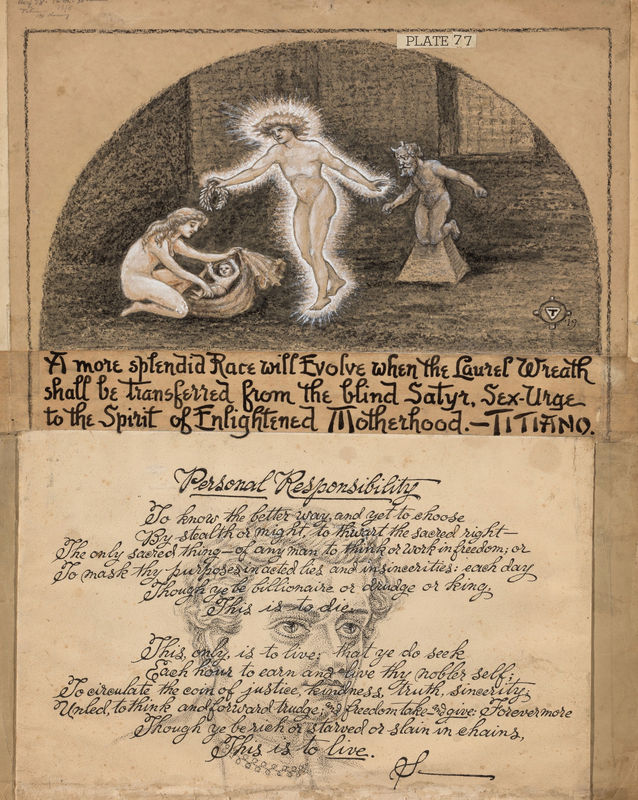 PLATE 77
T
19
A more splendid Race will Evolve when the Laurel Wreath
shall be transferred from the blind Satyr, Sex-Urge
to the Spirit of Enlightened Motherhood.—TITIANO.
Personal Responsibility
To know the better way, and yet to choose
By stealth or might, to thwart the sacred right—
The only sacred thing—of any man to think or work in freedom; or
To mask thy purposes in acted lies and insincerities: each day
Though ye be billionaire or drudge or king
This is to die.
This, only, is to live: that ye do seek
Each hour to earn and live thy nobler self;
To circulate the coin of justice, kindness, truth, sincerity;
Unled, to think and forward trudge, and freedom take and give: Forevermore
Though ye be rich or starved or slain in chains,
This is to live.